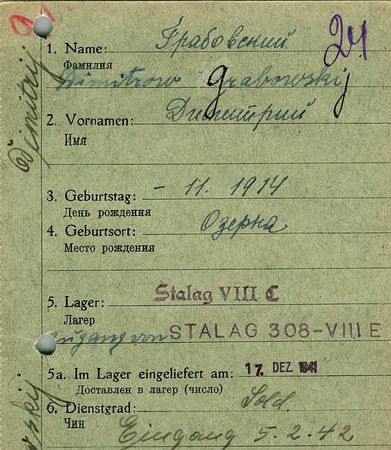 24
1. Name: Грабовский
Фамилия
Dimitrow Grabowskij
2. Vornamen: Димитрий
Имя
Dimitrij
3. Geburtstag: – 11. 1914
День рождения
4. Geburtsort: Озерна
Место рождения
5. Lager: Stalag VIII C
Лагер
Zugang von STALAG 308-VIII E
5a. Im Lager eingeliefert am: 17. DEZ. 1941
Доставлен в лагер (число)
6. Dienstgrad: Sold.
Чин
Eingang 5.2.42